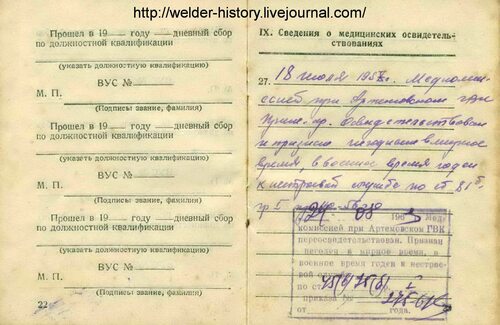 http://welder-history.livejournal.com/
Прошел в 19 — году — дневный сбор
по должностной квалификации
(указать должностную квалификацию)
ВУС №
М. П.
(Подписи звание, фамилия)
Прошел в 19 — году — дневный сбор
по должностной квалификации
(указать должностную квалификацию)
ВУС №
М. П.
(Подписи звание, фамилия)
Прошел в 19 — году — дневный сбор
по должностной квалификации
(указать должностную квалификацию)
ВУС №
М. П.
(Подписи звание, фамилия)
Прошел в 19 — году — дневный сбор
по должностной квалификации
(указать должностную квалификацию)
ВУС №
М. П.
(Подписи звание, фамилия)
22
IX. Сведения о медицинских освидетель-
ствованиях
27. 18 июля 195 г. Медкоми-
ссией при Артемовском
Освидетельствован
и признан негодным в мирное
время, в военное время годен
к нестроевой службе по ст. 81б
гр 5
24 08 196 Мед
комиссией при Артемовском ГВК
переосвидетельствован. Признан
негоден в мирное время, в
военное время годен к нестрое-
вой
по ст.
приказа
от года.